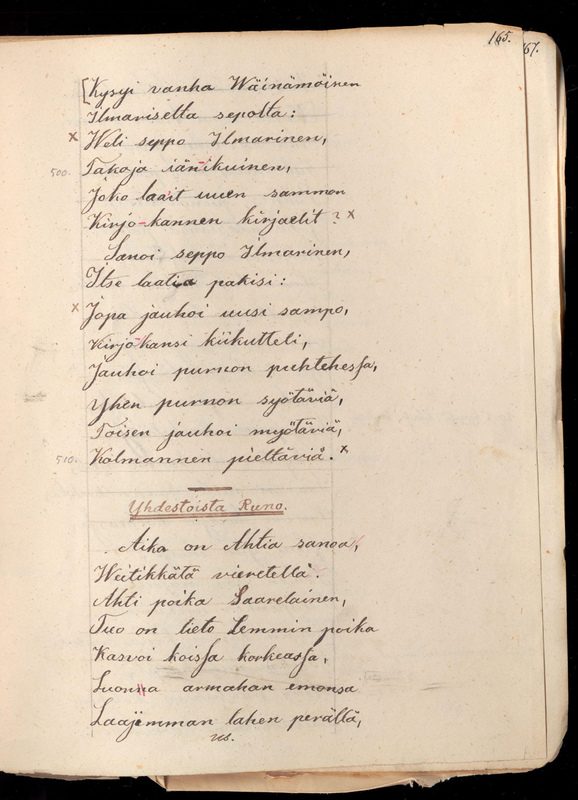 165.
67.
[Kysyi vanha Wäinämöinen
Ilmariselta sepolta:
x Weli seppo Ilmarinen,
500. Takoja iän-ikuinen,
Joko laait uuen sammon
Kirjo-kannen kirjaelit? x
Sanoi seppo Ilmarinen,
Itse laatia pakisi:
x Jopa jauhoi uusi sampo,
Kirjo-kansi kiikutteli,
Jauhoi purnon puhtehessa,
Yhen purnon syötäviä,
Toisen jauhoi myötäviä,
510. Kolmannen piettäviä. x
Yhdestoista Runo.
Aika on Ahtia sanoa,
Weitikkätä vieretellä.
Ahti poika Saarelainen,
Tuo on lieto Lemmin poika
Kasvoi koissa korkeassa,
Luonna armahan emonsa
Laajemman lahen perällä,